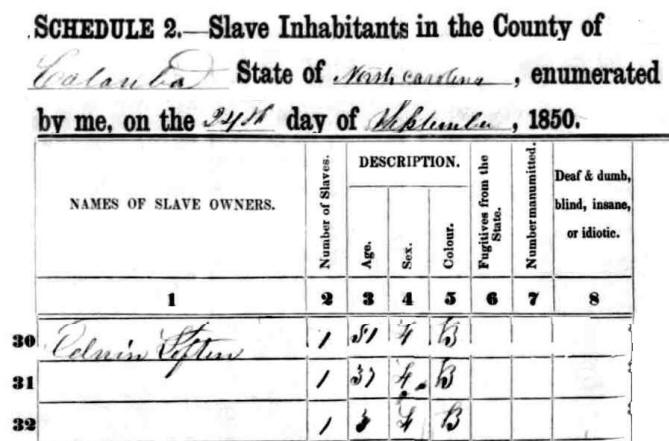 SCHEDULE 2.—Slave Inhabitants in the County of
Catawba State of North Carolina, enumerated
by me, on the 24th day of September, 1850.
NAMES OF SLAVE OWNERS.
Number of Slaves.
DESCRIPTION.
Age.
Sex.
Colour.
Fugitives from the State.
Number manumitted.
Deaf & dumb, blind, insane, or idiotic.
1 2 3 4 5 6 7 8
30 1 F B
31 1 37 F. B
32 1 3 F B